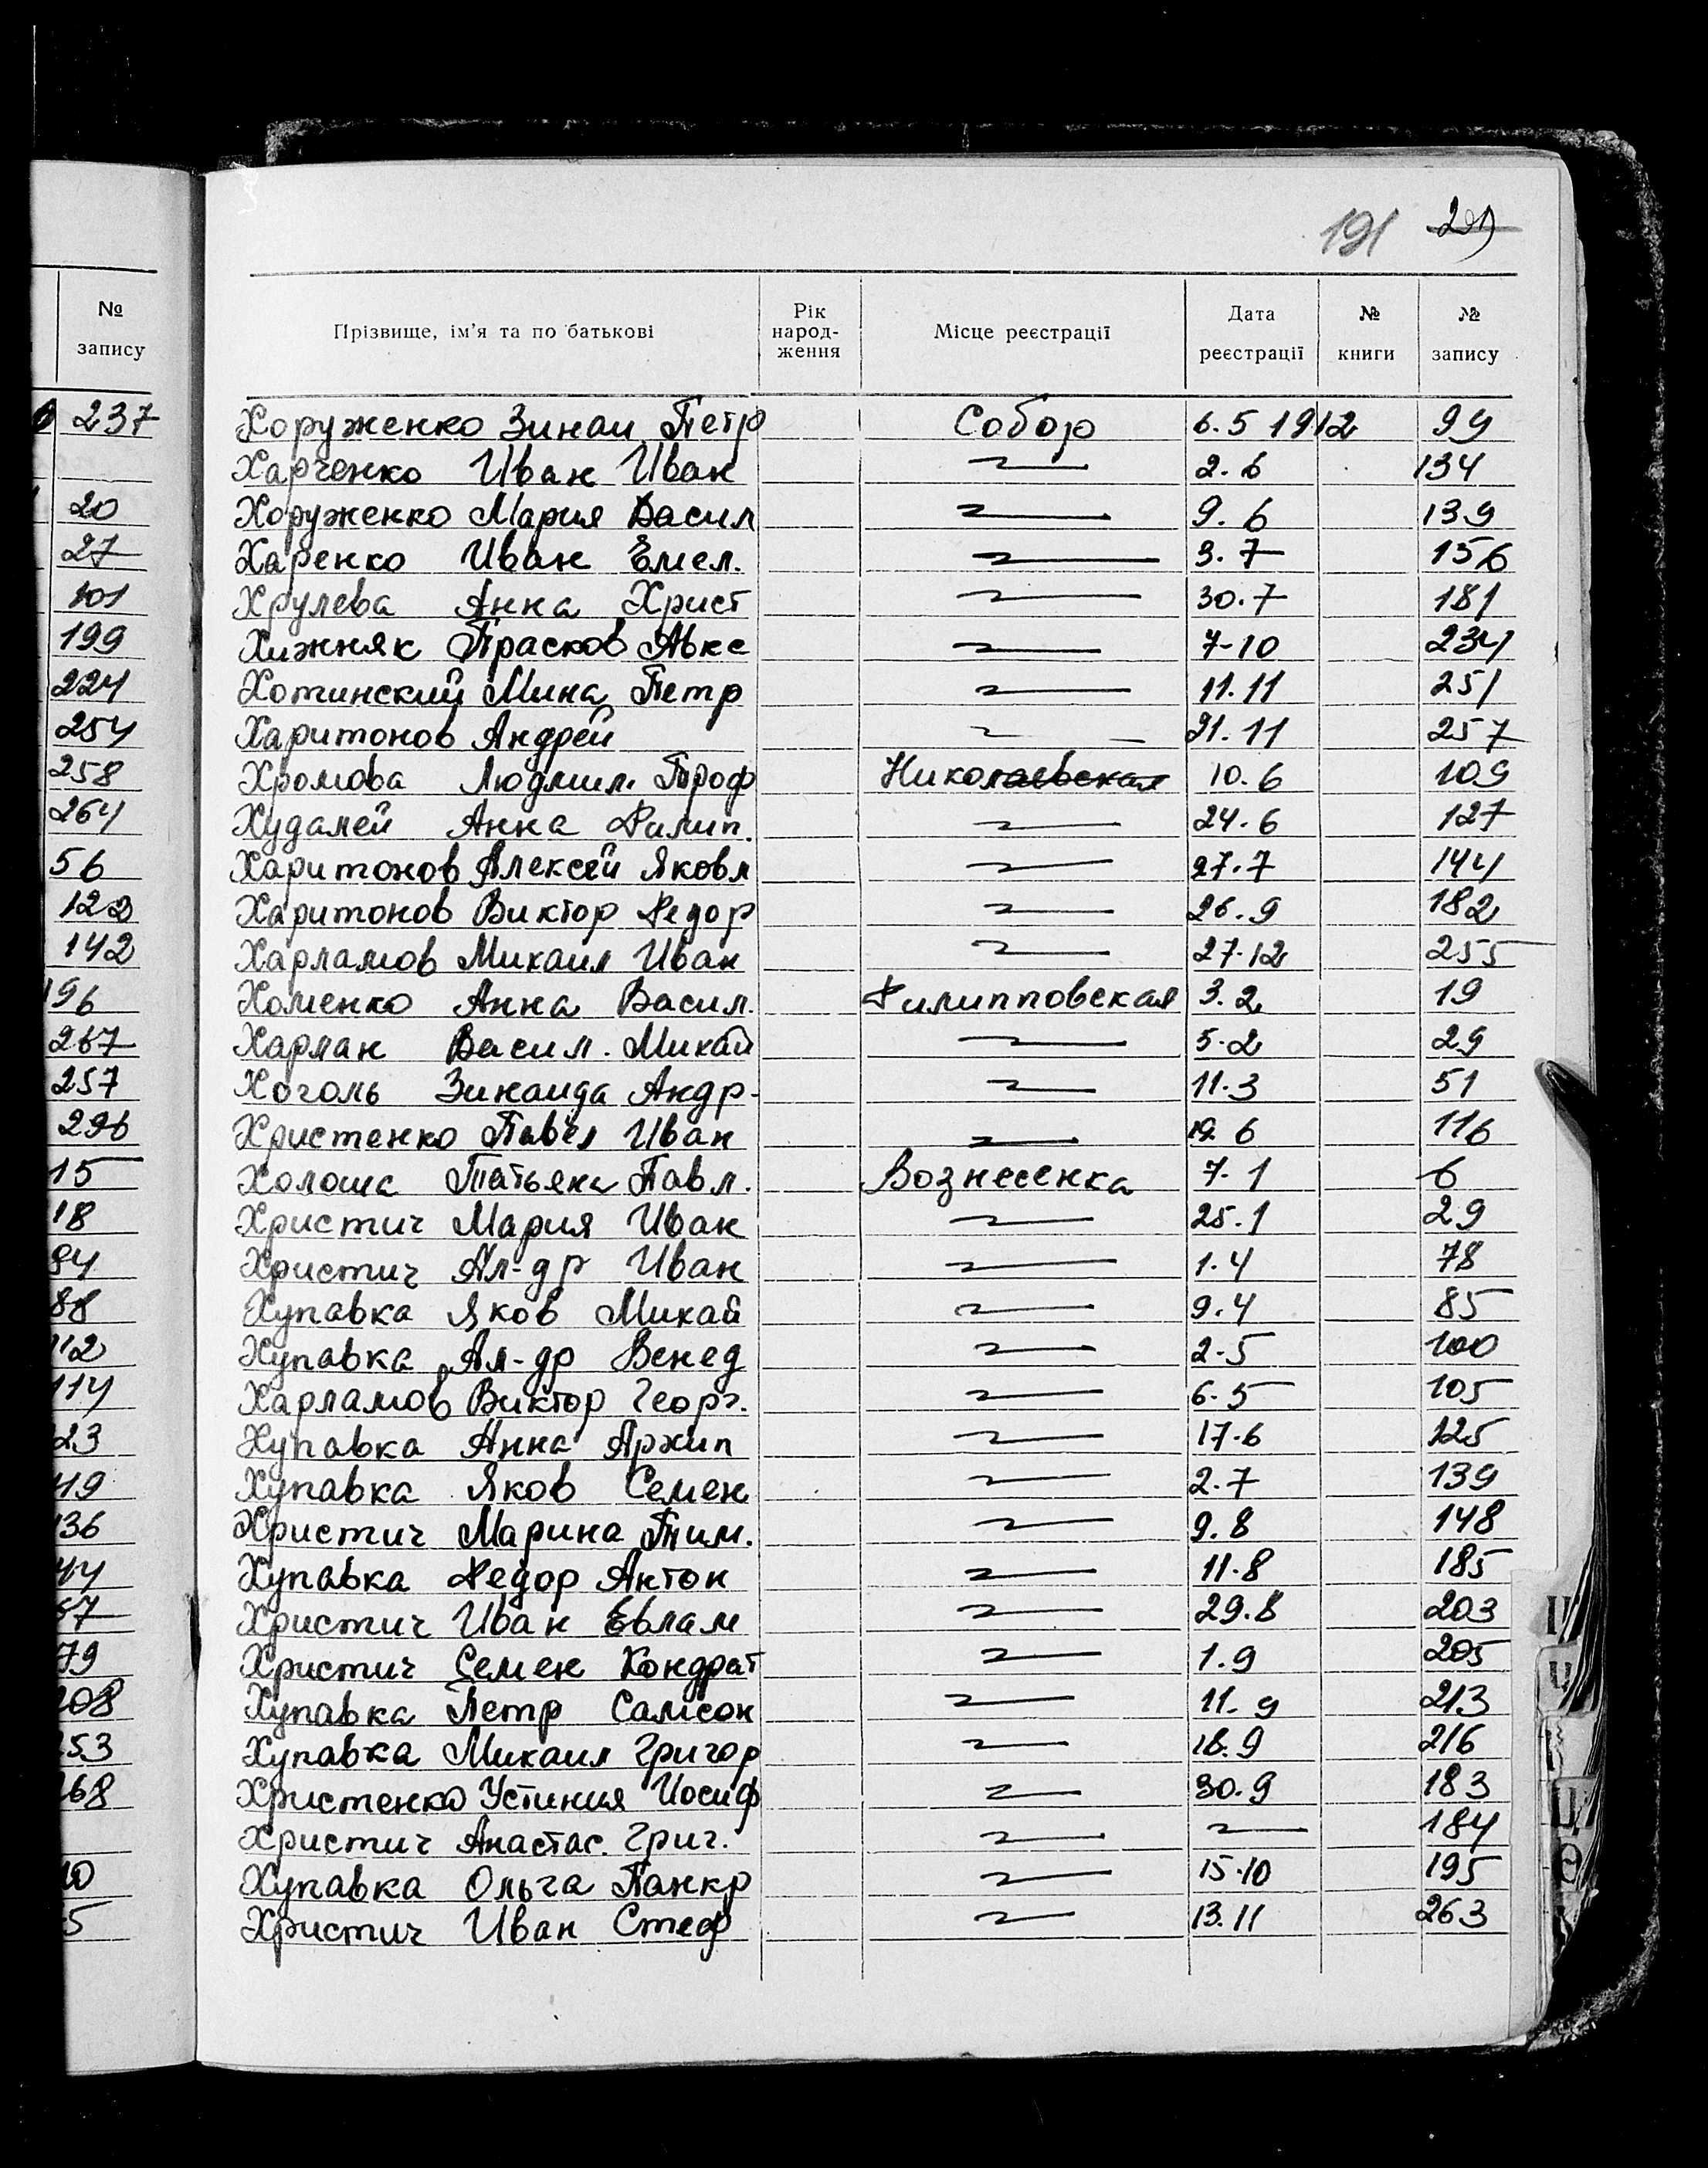 191 291
№ запису
Прізвище, ім'я та по батькові Рік народження Місце реєстрації Дата реєстрації № книги № запису
237 Хоруженко Зинаи Петр Собор 6.5 1912 99
Харченко Иван Иван 2.6 134
20 Хоруженко Мария Васил 9.6 139
27 Харенко Иван Емел. 3.7 156
101 Хрулева Анна Христ 30.7 181
199 Хижняк Прасков Авкс 7-10 234
224 Хотинский Мина Петр 11.11 251
254 Харитонов Андрей 21.11 257
258 Хромова Людмил. Троф Николаевская 10.6 109
264 Худалей Анна Филип. 24.6 127
56 Харитонов Алексей Яковл 27.7 144
122 Харитонов Виктор Федор 26.9 182
142 Харламов Михаил Иван 27.12 255
196 Хоменко Анна Васил. Филипповская 3.2 19
267 Харлан Васил. Михай 5.2 29
257 Хоголь Зинаида Андр. 11.3 51
296 Христенко Павел Иван 19 6 116
15 Холоша Татьяна Павл. Вознесенка 7.1 6
18 Христич Мария Иван 25.1 29
84 Христич Ал-др Иван 1.4 78
88 Хупавка Яков Михай 9.4 85
112 Хупавка Ал-др Венед 2-5 100
114 Харламов Виктор Георг. 6.5 105
23 Хупавка Анна Архип 17.6 125
119 Хупавка Яков Семен 2.7 139
136 Христич Марина Тим. 9.8 148
44 Хупавка Федор Антон 11.8 185
67 Христич Иван Евлам 29.8 203
79 Христич Семен Кондрат 1.9 205
208 Хупавка Петр Самсон 11.9 213
253 Хупавка Михаил Григор 18.9 216
268 Христенко Устиния Иосиф 30.9 183
Христич Анастас. Григ. 184
10 Хупавка Ольга Панкр 15.10 195
5 Христич Иван Стеф 13.11 263